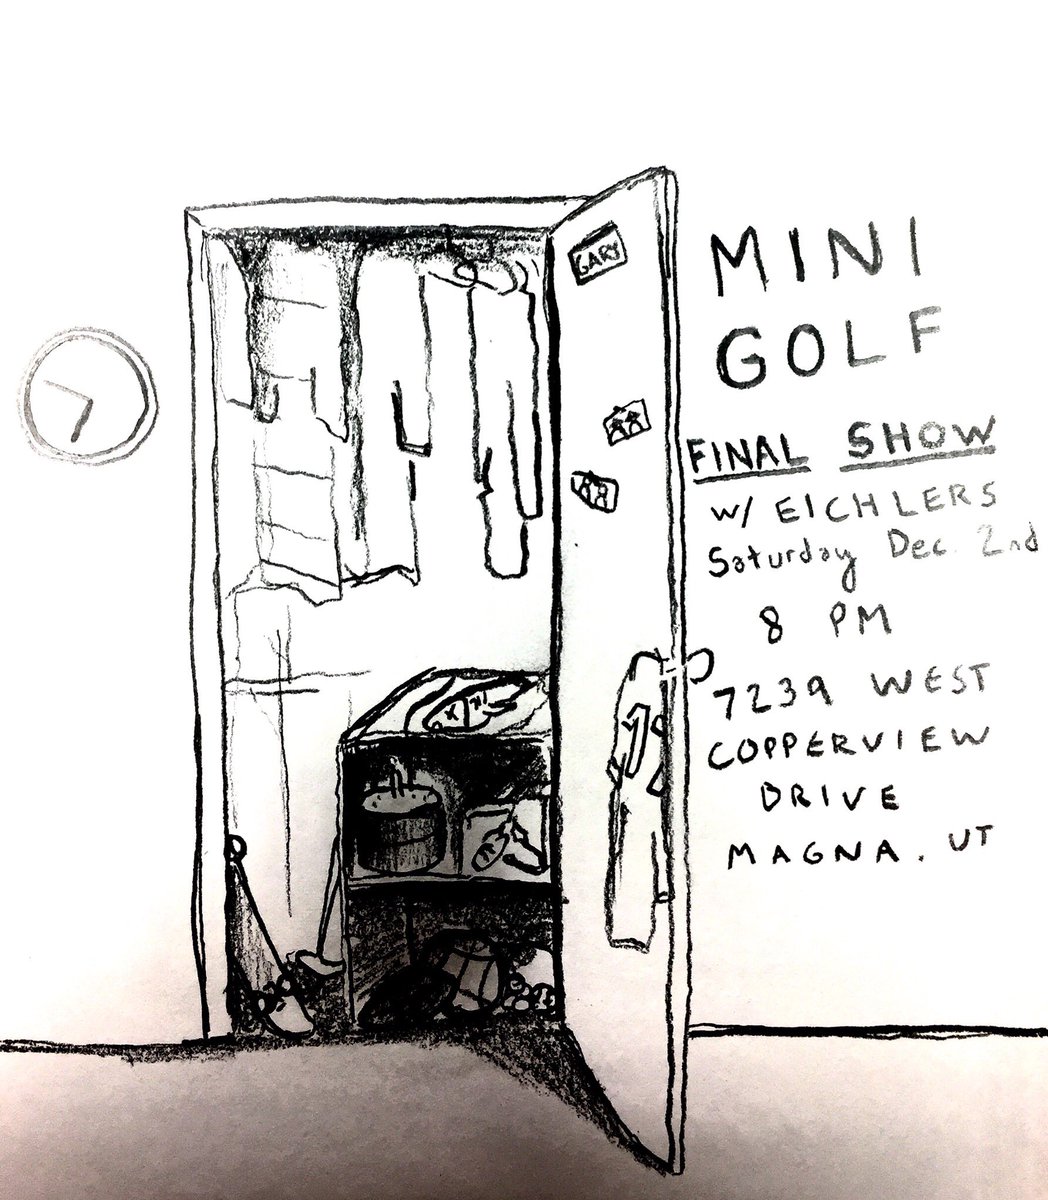 GARY
MINI
GOLF
FINAL SHOW
w/ EICHLERS
Saturday Dec. 2nd
8 PM
7239 WEST
COPPERVIEW
DRIVE
MAGNA. UT